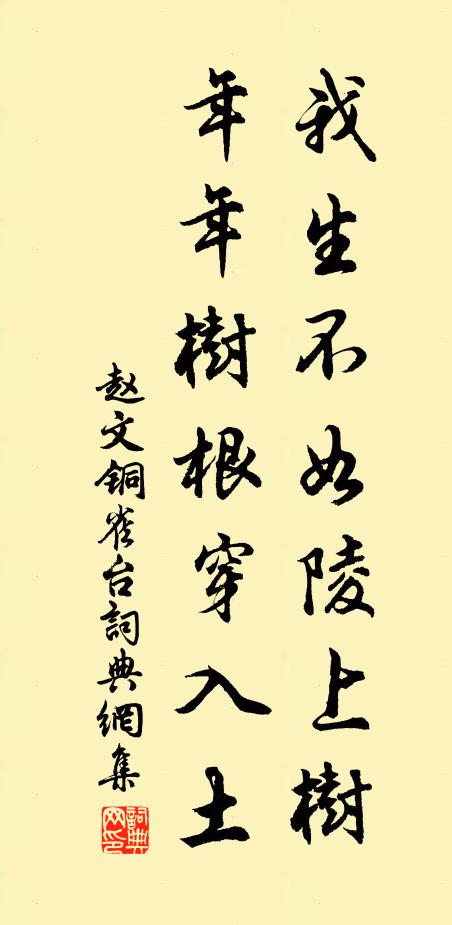 我生不如陵上樹
年年樹根穿入土
赵文铜雀台詞典網集
詞典网印